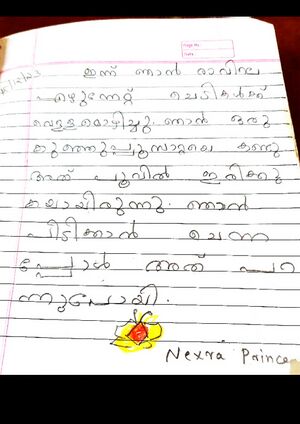 Page No.
Date
5/12/23
ഇന്ന് ഞാൻ രാവിലെ
എഴുന്നേറ്റ് ചെടികൾക്ക്
വെള്ളമൊഴിച്ചു ഞാൻ ഒരു
കുഞ്ഞുപൂമ്പാറ്റയെ കണ്ടു
അത് പൂവിൽ ഇരിക്കു
കയായിരുന്നു. ഞാൻ
പിടിക്കാൻ ചെന്ന
പ്പോൾ അത് പറ
ന്നുപോയി.
Nexra Prince